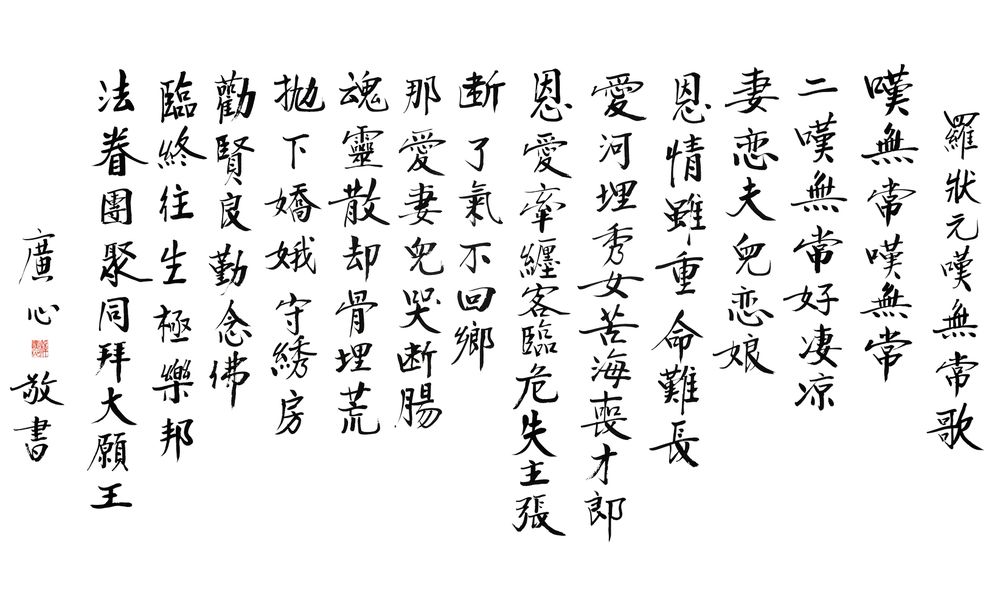 羅狀元嘆無常歌
嘆無常嘆無常
二嘆無常好凄凉
妻恋夫兒恋娘
恩情雖重命難長
愛河埋秀女苦海喪才郎
恩愛牽纏客臨危失主張
断了氣不回鄉
那愛妻兒哭断腸
魂靈散却骨埋荒
拋下嬌娥守綉房
勸賢良勤念佛
臨終往生極樂邦
法眷團聚同拜大願王
廣心
敬書